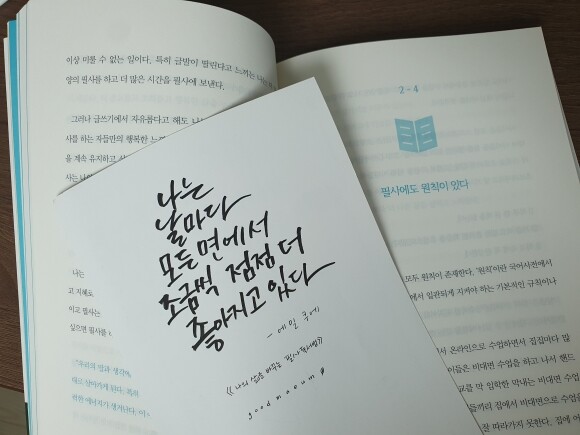 이상 미룰 수 없는 일이다. 특히 글발이 딸린다고 느끼는 나는
양의 필사를 하고 더 많은 시간을 필사에 보낸다.
그러나 글쓰기에서 자유롭다고 해도
사를 하는 자들만의 행복한
을 계속 유지하고
나는
고 지혜로
이고 필사는
싶으면 필사를
"우리의 말과 생각에
태로 살아가게 된다. 특히
적한 에너지가 생겨난다. 이"
나는
날마다
모든 면에서
조금씩 점점 더
좋아지고 있다
- 에밀 쿠에
《나의 삶을 바꾸는 필사 독서법》
good maoum
2-4
필사에도 원칙이 있다
모두 원칙이 존재한다. '원칙'이란 국어사전에서
에서 일관되게 지켜야 하는 기본적인 규칙이나
온라인으로 수업하면서 집집마다 많
이들은 비대면 수업을 하고 나서 핸드
교를 막 입학한 막내는 비대면 수업
들끼리 집에서 비대면으로 수업을
잘 따라가지 못한다. 집에